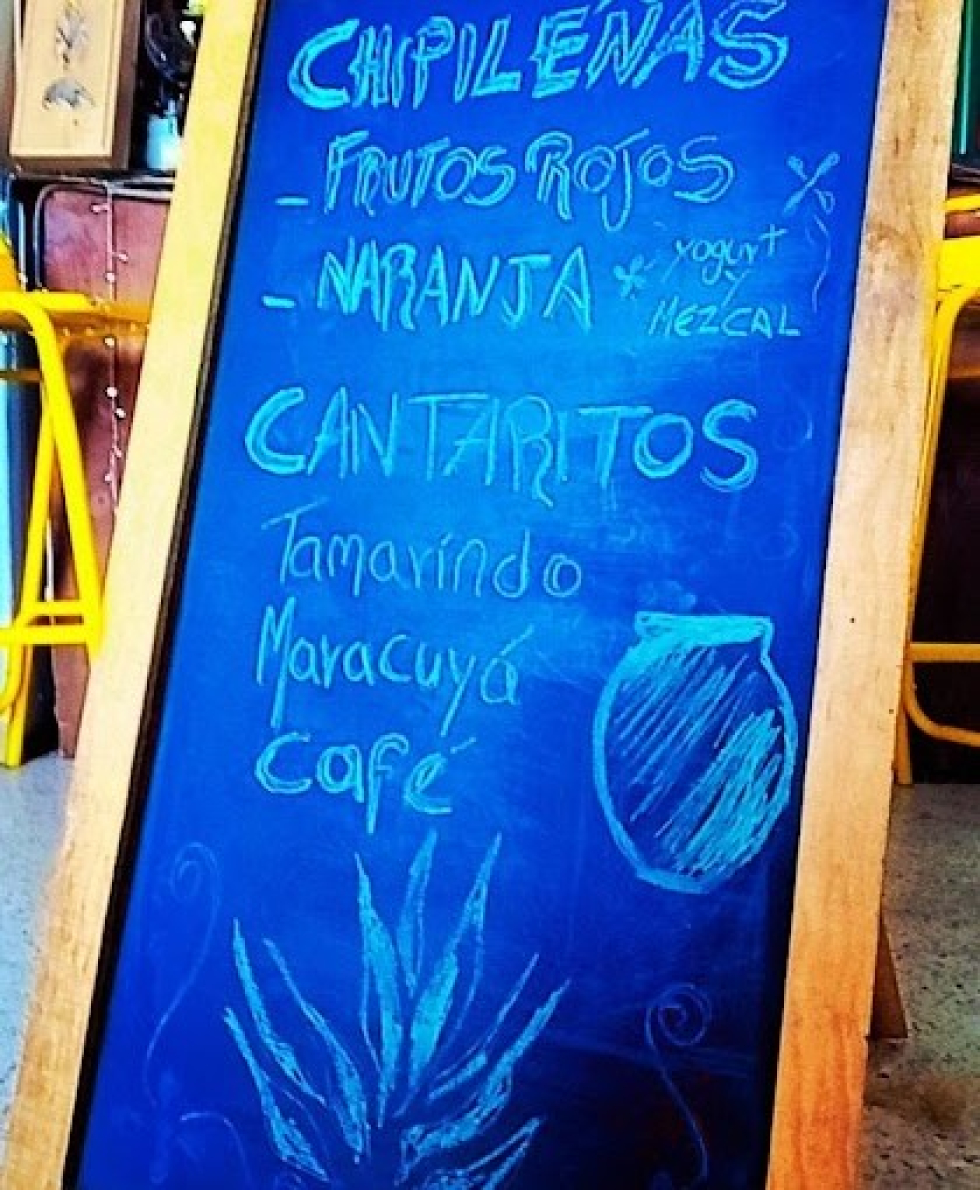 CHIPILEÑAS
- FRUTOS ROJOS
- NARANJA * yogurt
y
MEZCAL
CANTARITOS
Tamaríndo
Maracuyá
Café